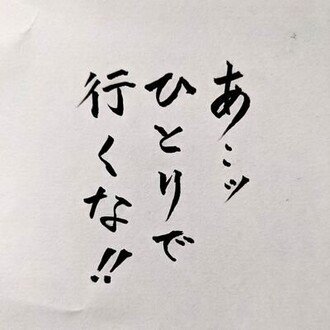 あ…ッ
ひとりで
行くな!!